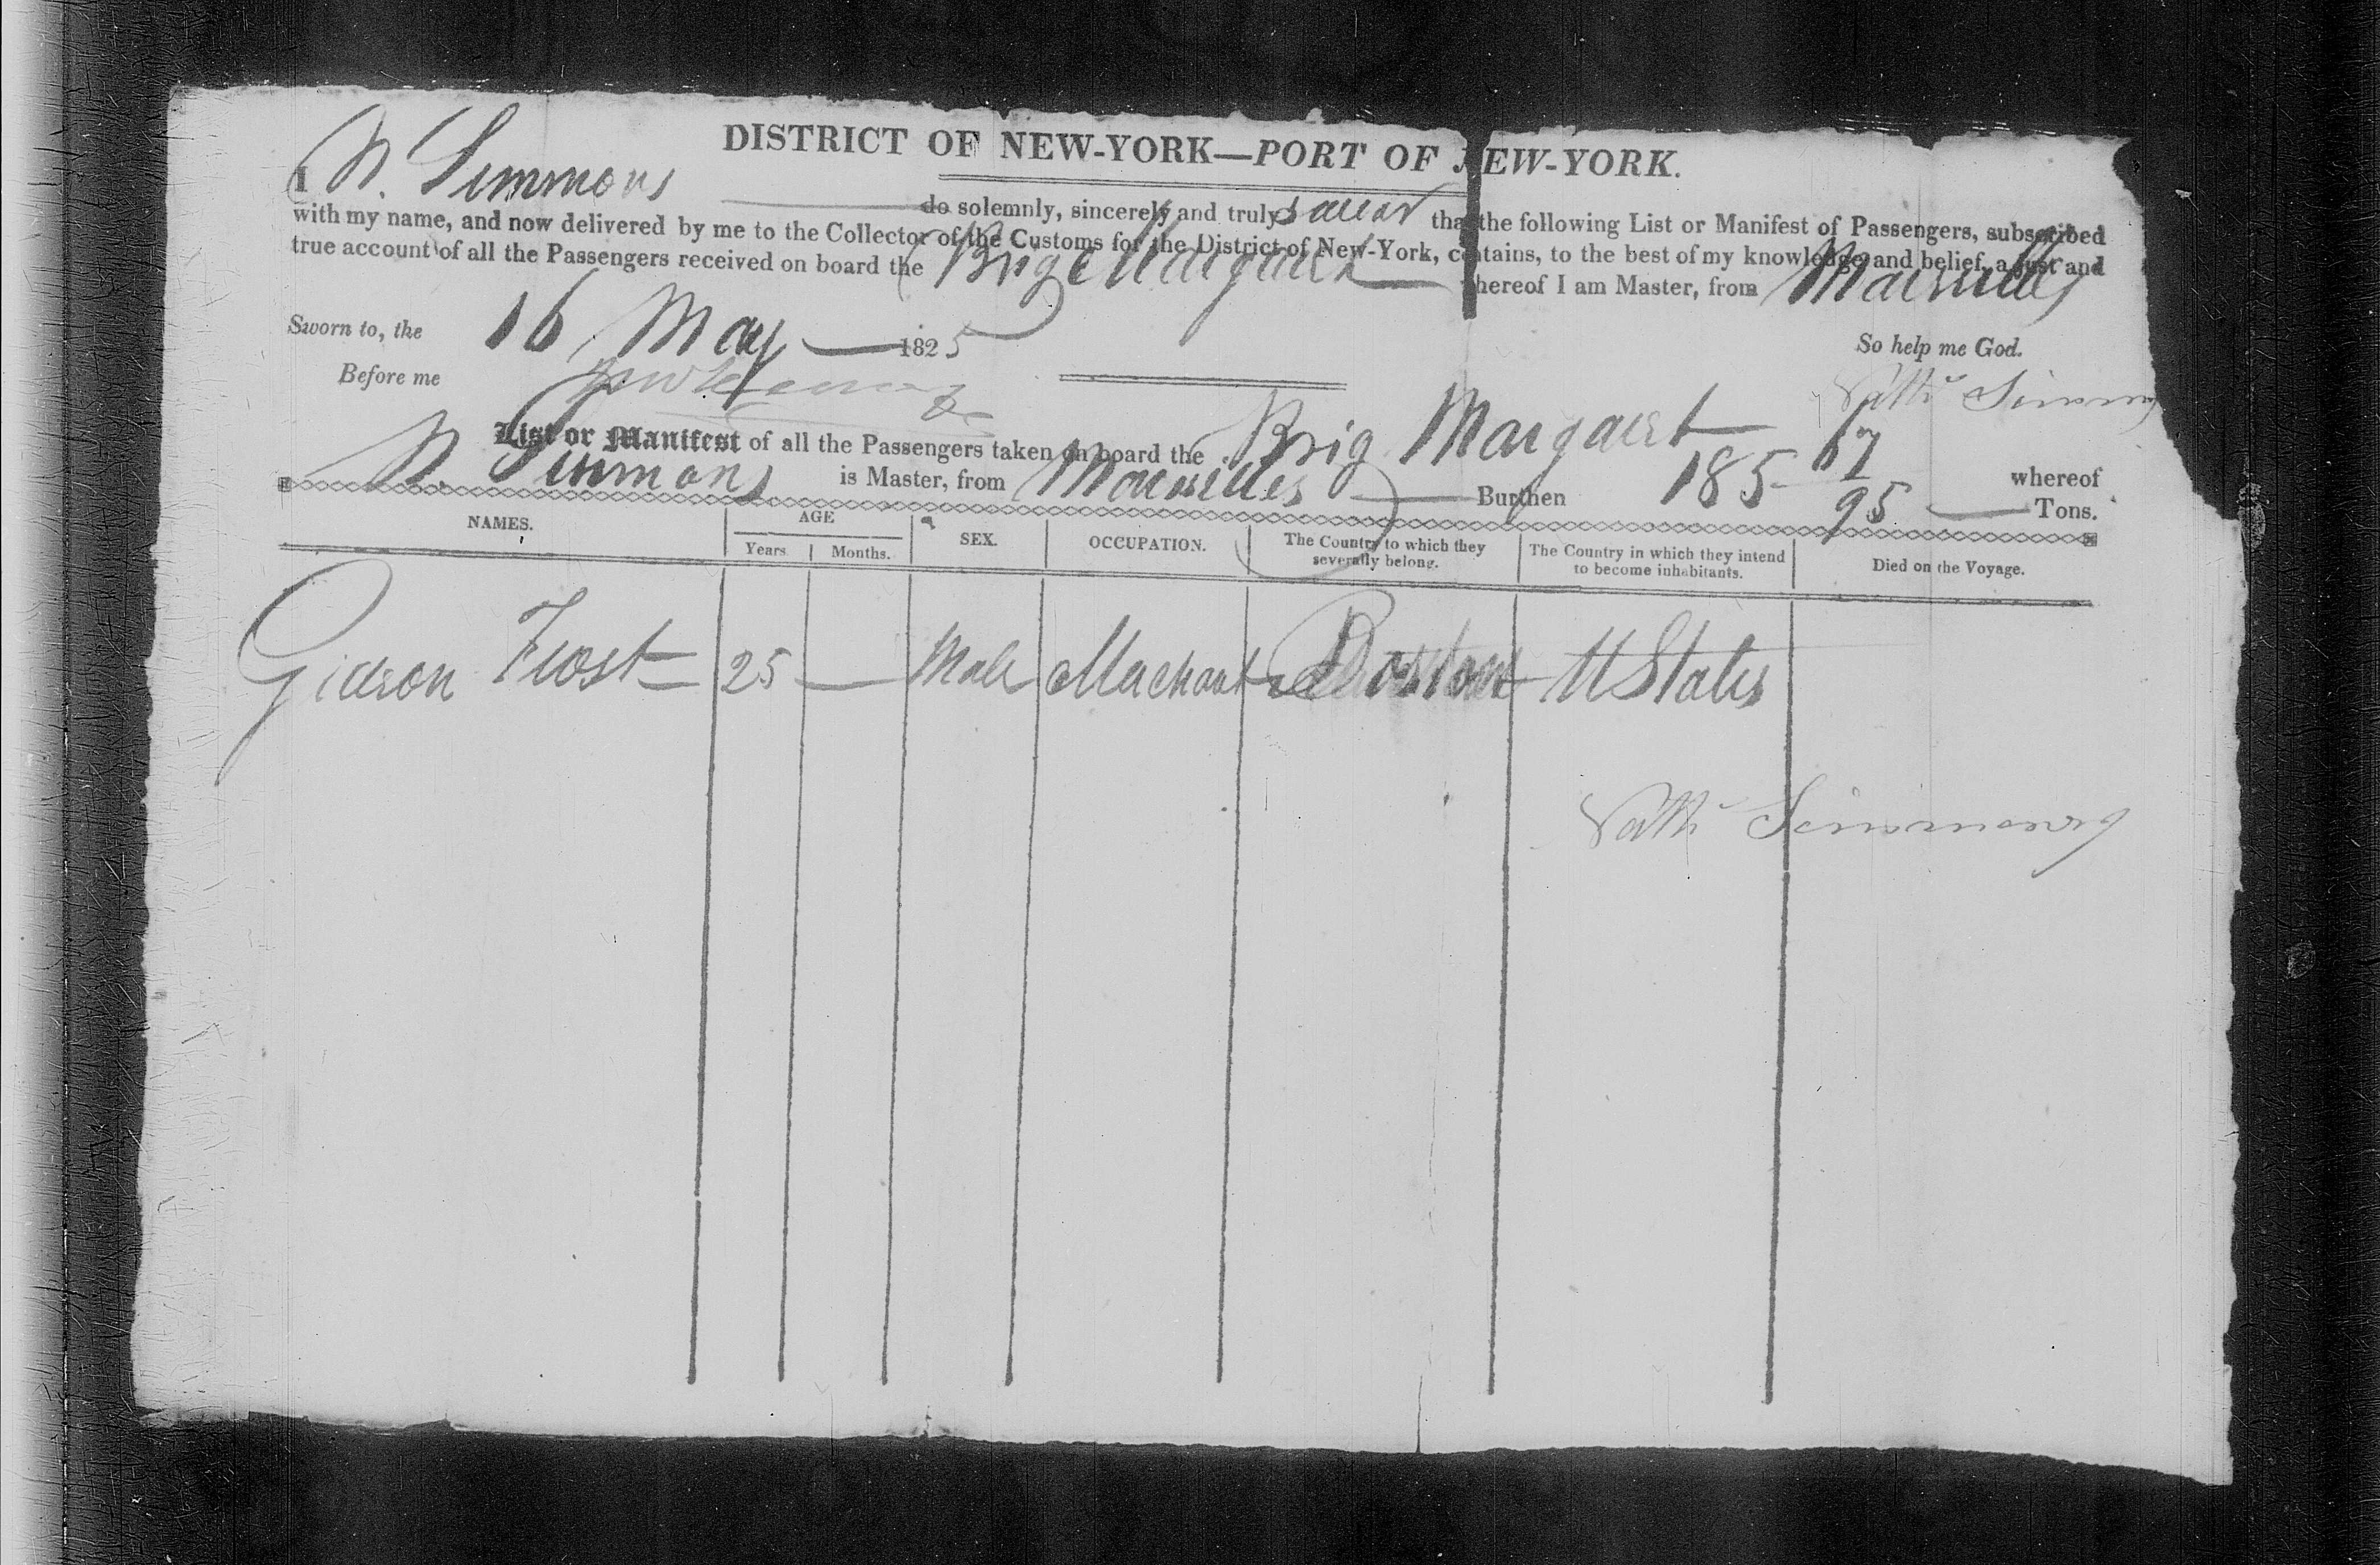 DISTRICT OF NEW-YORK—PORT OF NEW-YORK.
I N. Simmons do solemnly, sincerely and truly swear that the following List or Manifest of Passengers, subscribed
with my name, and now delivered by me to the Collector of the Customs for the District of New-York, contains, to the best of my knowledge and belief, a just and
true account of all the Passengers received on board the Brig Margaret whereof I am Master, from Marseilles
Sworn to, the 16 May 1825 So help me God.
Before me Nathl Simmons
List or Manifest of all the Passengers taken on board the Brig Margaret whereof
N. Simmons is Master, from Marseilles Burthen 185 67/95 Tons.
NAMES. AGE SEX. OCCUPATION. The Country to which they severally belong. The Country in which they intend to become inhabitants. Died on the Voyage.
Years Months.
Gideon Frost 25 Male Merchant Boston U States
Nathl Simmons